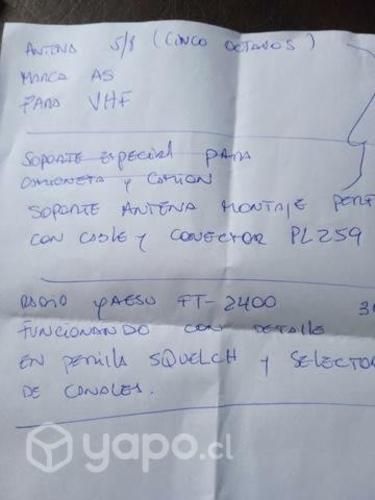 ANTENA 5/8 (CINCO OCTAVOS)
MARCA AS
PARA VHF
SOPORTE ESPECIAL PARA
CAMIONETA Y CAMION
SOPORTE ANTENA MONTAJE
CON CABLE Y CONECTOR PL259
RADIO YAESU FT-2400
FUNCIONANDO CON DETALLE
EN PERILLA SQUELCH Y SELECTOR
DE CANALES.
yapo.cl